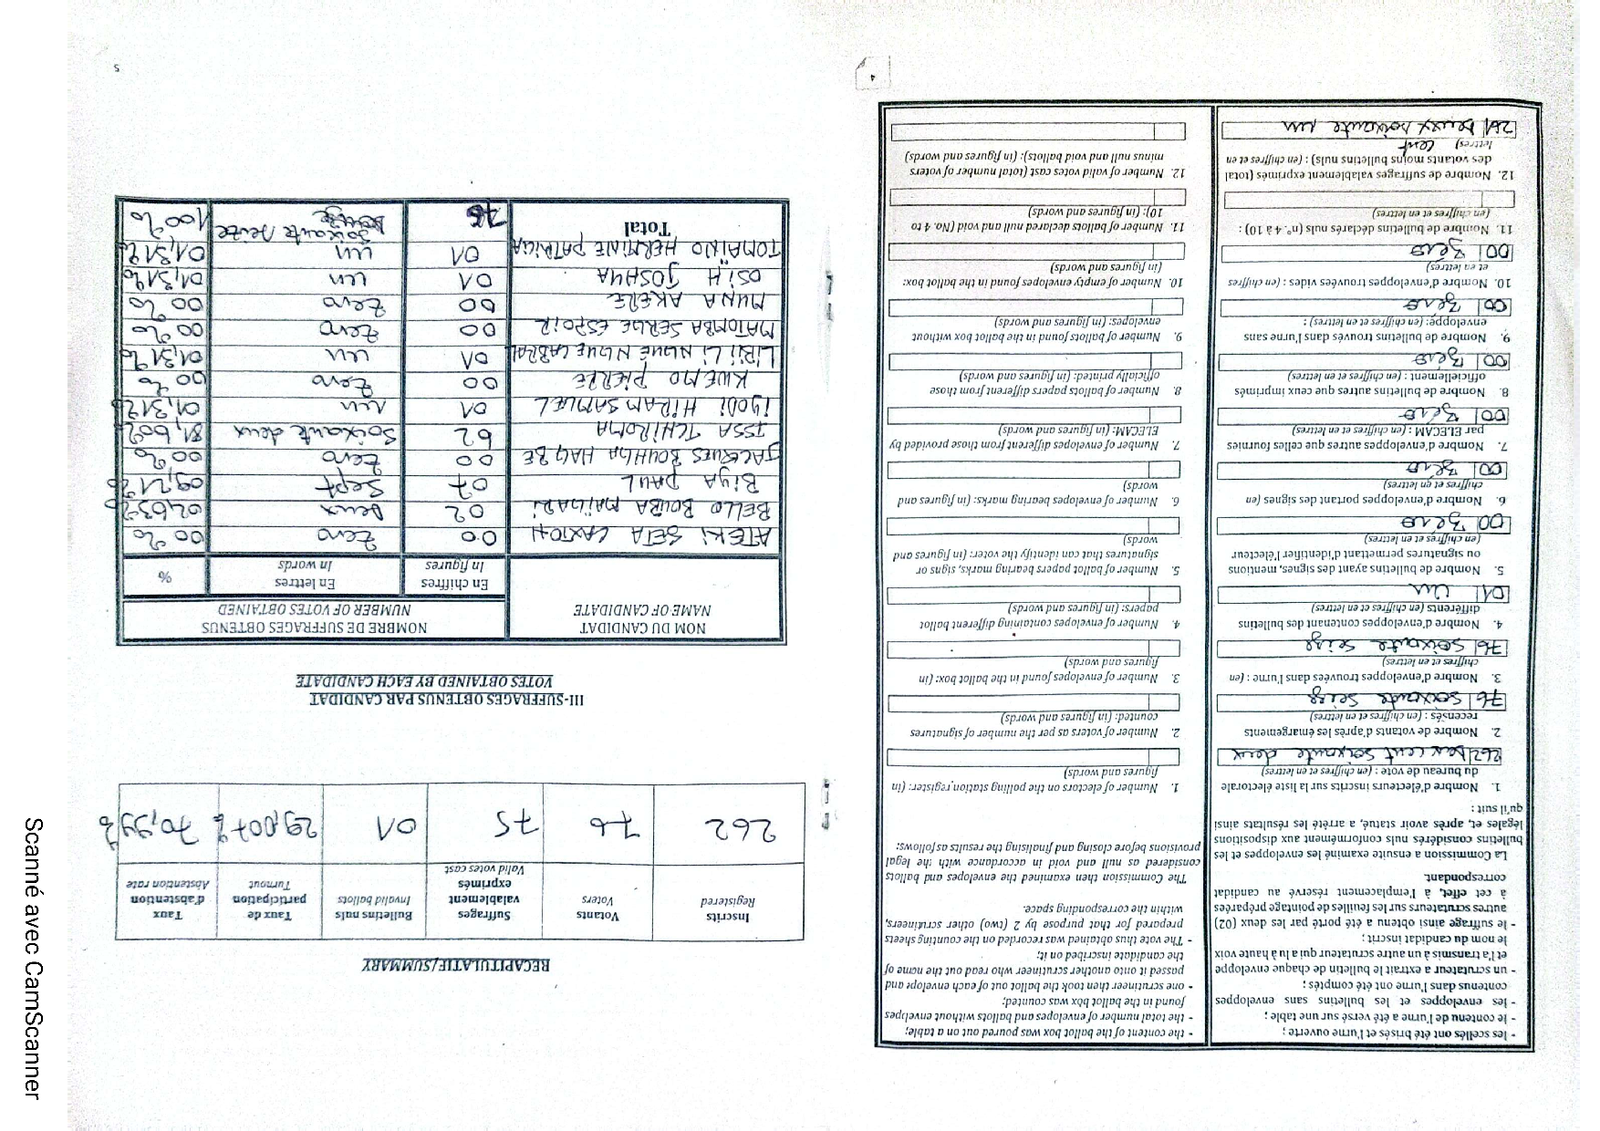 - les scellés ont été brisés et l'urne ouverte ;
- le contenu de l'urne a été versé sur une table ;
- les enveloppes et les bulletins sans enveloppes
contenus dans l'urne ont été comptés ;
- un scrutateur a extrait le bulletin de chaque enveloppe
et l'a transmis à un autre scrutateur qui a lu à haute voix
le nom du candidat inscrit ;
- le suffrage ainsi obtenu a été porté par les deux (02)
autres scrutateurs sur les feuilles de pointage préparées
à cet effet, à l'emplacement réservé au candidat
correspondant.
La Commission a ensuite examiné les enveloppes et les
bulletins considérés nuls conformément aux dispositions
légales et, après avoir statué, a arrêté les résultats ainsi
qu'il suit :
1. Nombre d'électeurs inscrits sur la liste électorale
du bureau de vote : (en chiffres et en lettres)
262 Deux cent soixante deux
2. Nombre de votants d'après les émargements
recensés : (en chiffres et en lettres)
76 soixante seize
3. Nombre d'enveloppes trouvées dans l'urne : (en
chiffres et en lettres)
76 soixante seize
4. Nombre d'enveloppes contenant des bulletins
différents (en chiffres et en lettres)
01 un
5. Nombre de bulletins ayant des signes, mentions
ou signatures permettant d'identifier l'électeur
(en chiffres et en lettres)
00 Zero
6. Nombre d'enveloppes portant des signes (en
chiffres et en lettres)
00 Zero
7. Nombre d'enveloppes autres que celles fournies
par ELECAM : (en chiffres et en lettres)
00 Zero
8. Nombre de bulletins autres que ceux imprimés
officiellement : (en chiffres et en lettres)
00 Zero
9. Nombre de bulletins trouvés dans l'urne sans
enveloppe: (en chiffres et en lettres) :
00 Zero
10. Nombre d'enveloppes trouvées vides : (en chiffres
et en lettres)
00 Zero
11. Nombre de bulletins déclarés nuls (n°. 4 à 10) :
(en chiffres et en lettres)
12. Nombre de suffrages valablement exprimés (total
des votants moins bulletins nuls) : (en chiffres et en
lettres) cent
261 Deux soixante un
- the content of the ballot box was poured out on a table;
- the total number of envelopes and ballots without envelopes
found in the ballot box was counted;
- one scrutineer then took the ballot out of each envelope and
passed it onto another scrutineer who read out the name of
the candidate inscribed on it;
- The vote thus obtained was recorded on the counting sheets
prepared for that purpose by 2 (two) other scrutineers,
within the corresponding space.
The Commission then examined the envelopes and ballots
considered as null and void in accordance with the legal
provisions before closing and finalising the results as follows:
1. Number of electors on the polling station register: (in
figures and words)
2. Number of voters as per the number of signatures
counted: (in figures and words)
3. Number of envelopes found in the ballot box: (in
figures and words)
4. Number of envelopes containing different ballot
papers: (in figures and words)
5. Number of ballot papers bearing marks, signs or
signatures that can identify the voter: (in figures and
words)
6. Number of envelopes bearing marks: (in figures and
words)
7. Number of envelopes different from those provided by
ELECAM: (in figures and words)
8. Number of ballots papers different from those
officially printed: (in figures and words)
9. Number of ballots found in the ballot box without
envelopes: (in figures and words)
10. Number of empty envelopes found in the ballot box:
(in figures and words)
11. Number of ballots declared null and void (No. 4 to
10): (in figures and words)
12. Number of valid votes cast (total number of voters
minus null and void ballots): (in figures and words)
4
RECAPITULATIF/SUMMARY
Inscrits Registered | Votants Voters | Suffrages valablement exprimés Valid votes cast | Bulletins nuls Invalid ballots | Taux de participation Turnout | Taux d'abstention Abstention rate
262 76 75 01 29,007% 70,99%
III-SUFFRAGES OBTENUS PAR CANDIDAT
VOTES OBTAINED BY EACH CANDIDATE
NOM DU CANDIDAT NOMBRE DE SUFFRAGES OBTENUS
NAME OF CANDIDATE NUMBER OF VOTES OBTAINED
En chiffres En lettres %
In figures In words
ATEKI SETA CAXTON 00 Zero 00%
BELLO BOUBA MAÏGARI 02 Deux 02,63%
BIYA PAUL 07 Sept 09,21%
JACQUES BOUHGA HAGBE 00 Zero 00%
ISSA TCHIROMA 62 Soixante deux 81,60%
IYODI HIRAM SAMUEL 01 un 01,31%
KWEMO PIERRE 00 Zero 00%
LIBII LI NGUE NGUE CABRAL 01 un 01,31%
MATOMBA SERGE ESPOIR 00 Zero 00%
MUNA AKERE 00 Zero 00%
OSIH JOSHUA 01 un 01,31%
TOMAÏNO HERMINE PATRICIA 01 un 01,31%
Total 76 soixante seize 100%
5
Scanné avec CamScanner